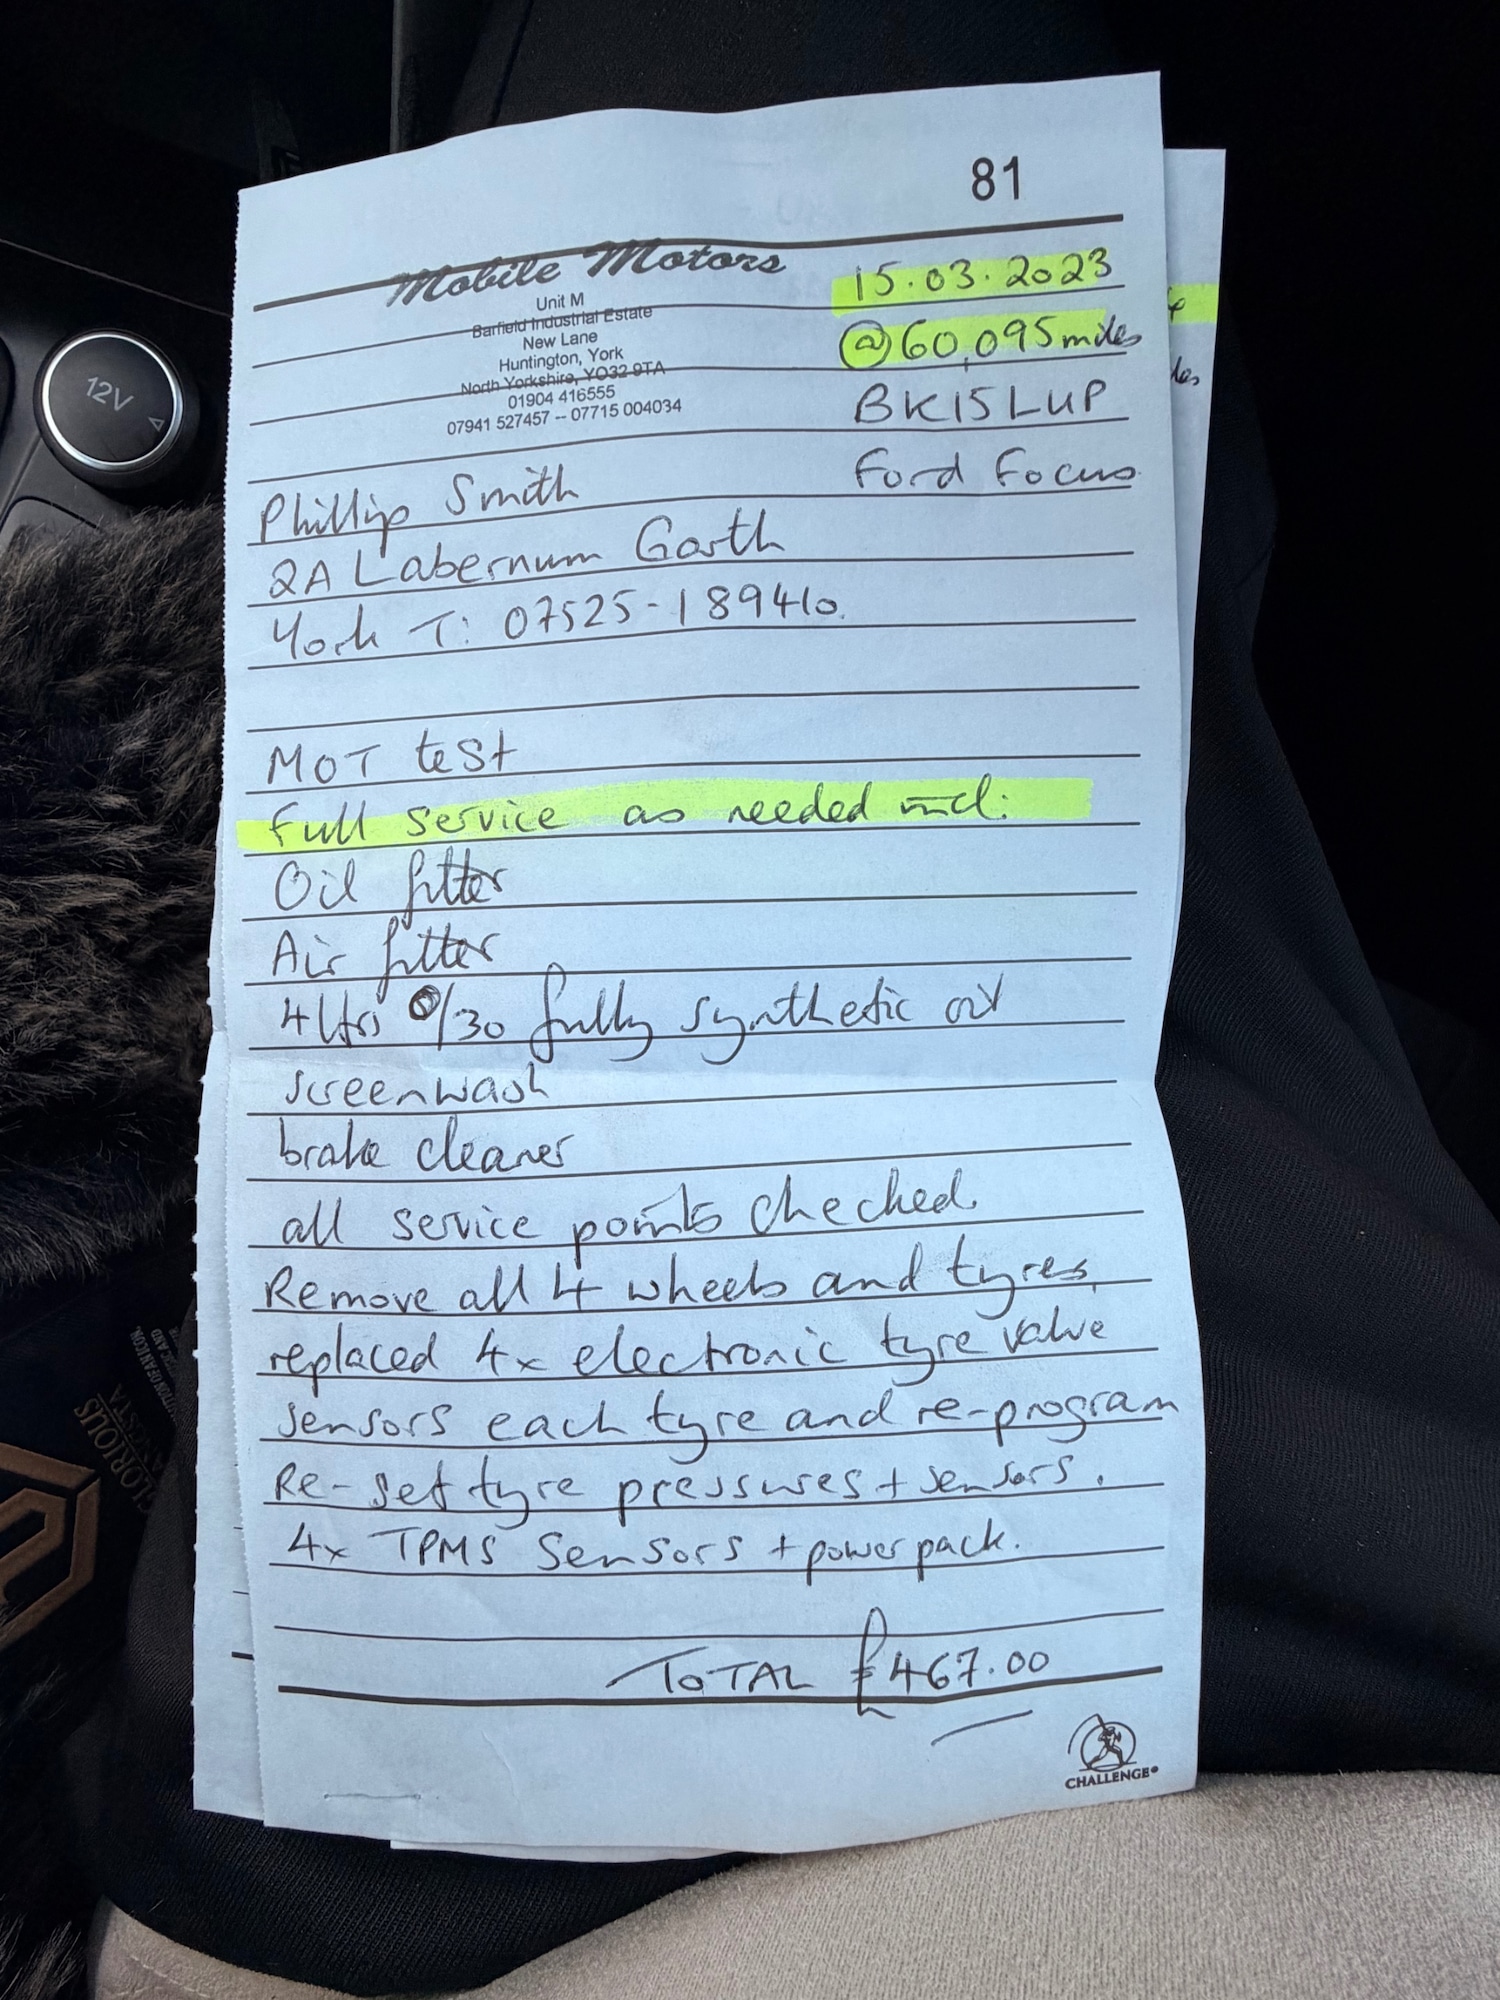 81
Mobile Motors
Unit M
Barfield Industrial Estate
New Lane
Huntington, York
North Yorkshire, YO32 9TA
01904 416555
07941 527457 -- 07715 004034
15.03.2023
@60,095 miles
BK15 LUP
Ford Focus
Phillip Smith
2A Labernum Garth
York T: 07525-189410.
MOT test
Full service as needed incl:
Oil filter
Air filter
4 ltrs 0/30 fully synthetic oil
screenwash
brake cleaner
all service points checked.
Remove all 4 wheels and tyres,
replaced 4x electronic tyre valve
sensors each tyre and re-program
Re-set tyre pressures + sensors.
4x TPMS Sensors + powerpack.
TOTAL £467.00
CHALLENGE
12V
GLORIOUS